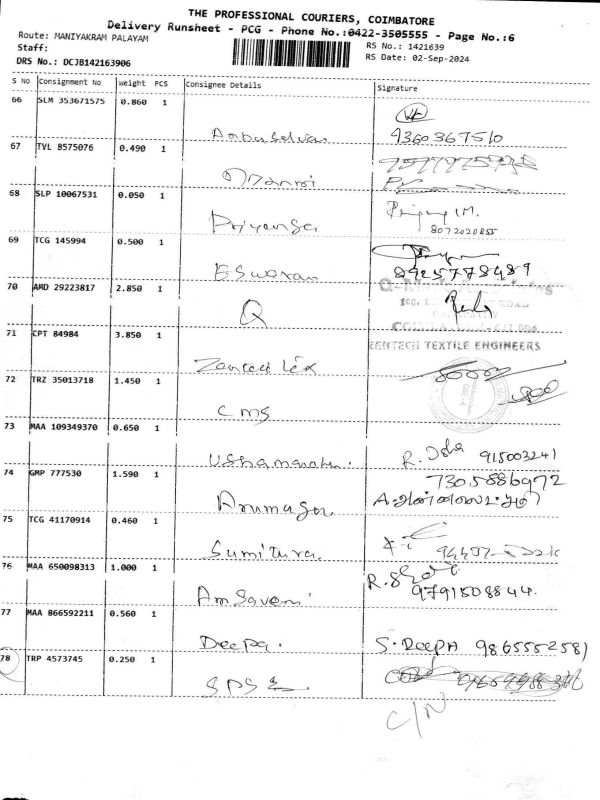 THE PROFESSIONAL COURIERS, COIMBATORE
Delivery Runsheet - PCG - Phone No.:0422-3505555 - Page No.:6
Route: MANIYAKRAM PALAYAM
RS No.: 1421639
Staff:
RS Date: 02-Sep-2024
DRS No.: DCJB142163906
S No Consignment No Weight PCS Consignee Details Signature
66 SLM 353671575 0.860 1
Anbuselvan 9360367510
67 TVL 8575076 0.490 1
68 SLP 10067531 0.050 1
Priyanga 8072020855
69 TCG 145994 0.500 1
Eswaran 8925778489
70 AMD 29223817 2.850 1
Q
71 CPT 84984 3.850 1
TEXTILE ENGINEERS
72 TRZ 35013718 1.450 1
CMS
73 MAA 109349370 0.650 1
R. Isha 915003241
74 GMP 777530 1.590 1
7305886972
Arumugam
75 TCG 41170914 0.460 1
Sumithra
76 MAA 650098313 1.000 1
9791508844.
77 MAA 866592211 0.560 1
Deepa. S. DEEPA 9865552581
78 TRP 4573745 0.250 1
SPS
C/N